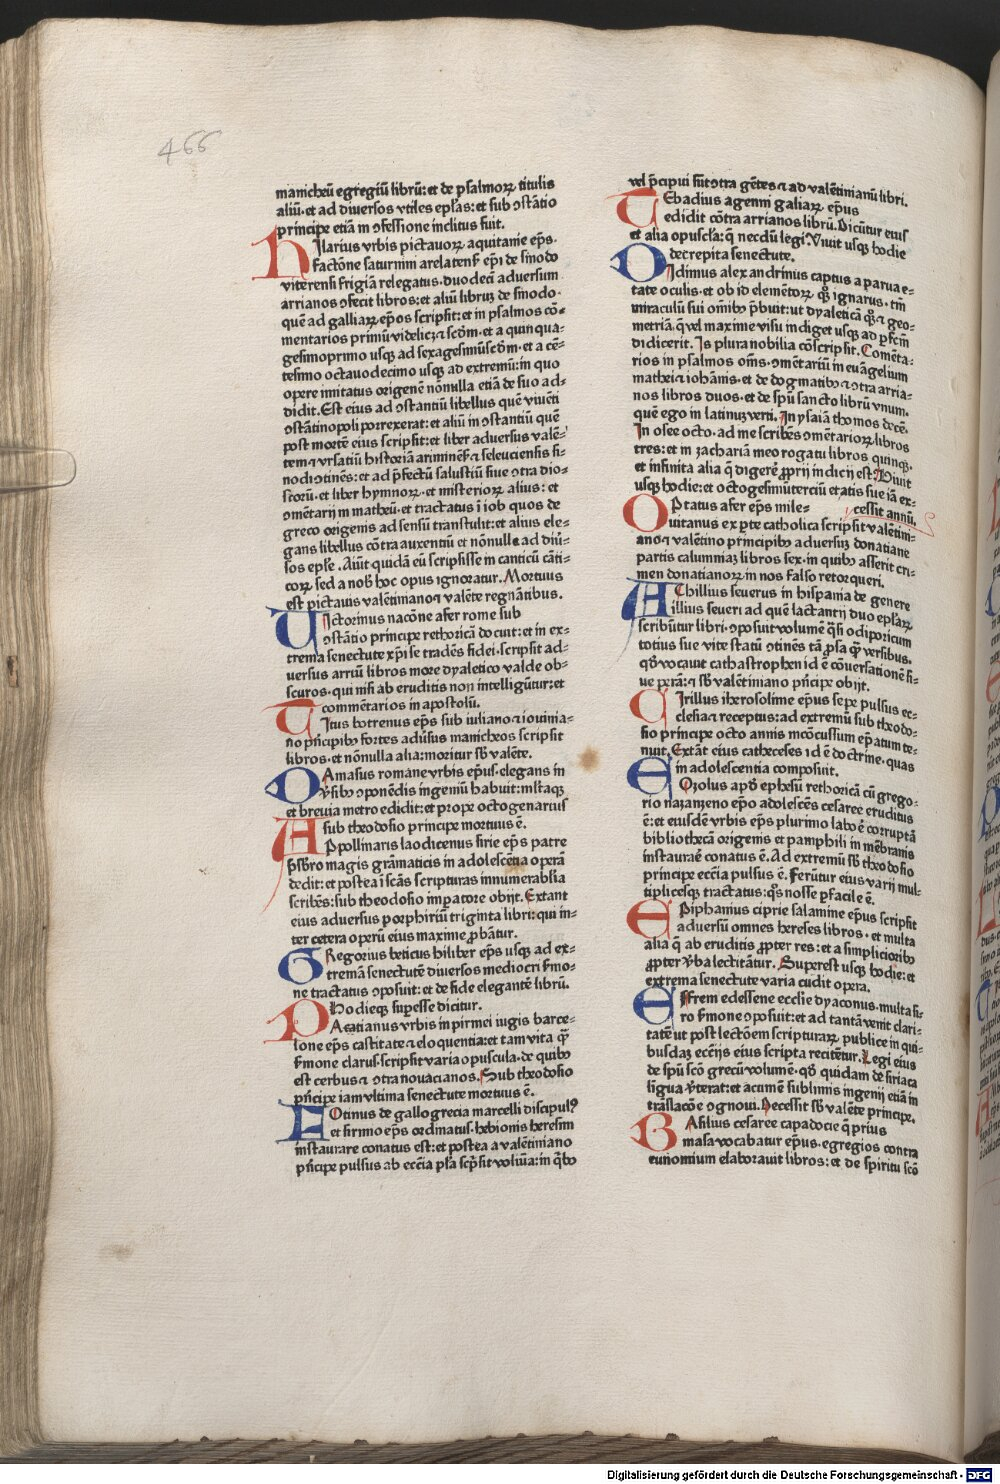 466
manicheū egregiū librū: et de psalmoꝝ titulis
aliū· et ad diuersos vtiles ep̄las: et sub ↄstātio
principe etiā in ↄfessione inclitus fuit.
Hilarius vrbis pictauoꝝ aquitanie ep̄s·
factōne saturnini arelatenſ ep̄i de sinodo
viterensi frigiā relegatus· duodecī aduersum
arrianos ↄfecit libros: et aliū libruꝫ de sinodo·
quē ad galliaꝝ ep̄os scripsit: et in psalmos cō⸗
mentarios primū videlicꝫ ⁊ scd̄m· et a quinqua⸗
gesimoprimo usqꝫ ad sexagesimūscd̄m· et a cē⸗
tesimo octauodecimo usqꝫ ad extremū: in quo
opere imitatus origenē nōnulla etiā de suo ad⸗
didit. Est eius ad ↄstantiū libellus quē viuēti
ↄstātinopoli porrexerat: et aliū in ↄstantiū quē
post mortē eius scripsit: et liber aduersus valē⸗
tem ⁊ vrsatiū historiā ariminenſ ⁊ seleuciensis si⸗
nodi ↄtinēs: et ad p̄fectū salustiū siue ↄtra dio⸗
scorū· et liber hymnoꝝ· et misterioꝝ alius: et
ↄmētarij in matheū· et tractatus ī iob quos de
greco origenis ad sensū transtulit: et alius ele⸗
gans libellus cōtra auxentiū et nōnulle ad diū⸗
sos ep̄le. Aiūt quidā eū scripsisse in canticū cāti⸗
coꝝ sed a nob̄ hoc opus ignoratur. Mortuus
est pictauis valētiniano ⁊ valēte regnātibus.
Uictorinus nacōne afer rome sub
ↄstātio principe rethoricā docuit: et in ex⸗
trema senectute xp̄i se tradēs fidei· scripsit ad⸗
uersus arriū libros more dyaletico valde ob⸗
scuros· qui nisi ab eruditis non intelligūtur: et
commētarios in apostolū.
Titus botrenus ep̄s sub iuliano ⁊ iouinia⸗
no p̄ncipibꝰ fortes adūsus manicheos scripsit
libros· et nōnulla alia: moritur sb̄ valēte.
Damasus romane vrbis ep̄us· elegans in
v̄sibꝰ ↄponēdis ingeniū habuit: ml̄taqꝫ
et breuia metro edidit: et prope octogenarius
sub theodosio principe mortuus ē.
Appollinaris laodicenus sirie ep̄s patre
p̄sb̄ro magis grāmaticis in adolescētia operā
dedit: et postea ī scās scripturas innumerabilia
scribēs: sub theodosio imꝑatore obijt. Extant
eius aduersus porphiriū triginta libri: qui in⸗
ter cetera operū eius maxime ꝓbātur.
Gregorius beticus hiliber ep̄s usqꝫ ad ex⸗
tremā senectutē diuersos mediocri s̄mo⸗
ne tractatus ↄposuit: et de fide elegantē librū.
Hodieqꝫ suꝑesse dicitur.
Pacatianus vrbis in pirinei iugis barce⸗
lone ep̄s castitate ⁊ eloquentia: et tam vita q̄ꝫ
s̄mone clarus· scripsit varia opuscula· de quibꝰ
est cerbus ⁊ ↄtra nouacianos. Sub theodosio
p̄ncipe iam vltima senectute mortuus ē.
Fotinus de gallogrecia marcelli discipulꝰ
et sirmio ep̄s ordinatus· hebionis heresim
instaurare conatus est: et postea a valētiniano
p̄ncipe pulsus ab ecc̄ia pl̄a scp̄sit volūīa: in q̄bꝰ
vel p̄cipui sūt ↄtra gētes ⁊ ad valētinianū libri.
Tebadius agenni galiaꝝ ep̄us
edidit cōtra arrianos librū. Dicūtur eius
et alia opuscl̄a: q̄ necdū legi. Viuit usqꝫ hodie
decrepita senectute.
Didimus alexandrinus captus a parua e⸗
tate oculis· et ob id elemētoꝝ qꝫ ignarus· tm̄
miraculū sui om̄ibꝰ p̄buit: ut dyaleticā qꝫ ⁊ geo⸗
metriā· q̄ vel maxime visu indiget usqꝫ ad ꝑfcm̄
didicerit. Is plura nobilia cōscripsit. Comēta⸗
rios in psalmos om̄s· ↄmētariū in euāgelium
mathei ⁊ iohānis· et de dogmatibꝰ ⁊ ↄtra arria⸗
nos libros duos· et de sp̄u sancto librū vnum·
quē ego in latinuꝫ verti. In ysaiā thomos decē·
In osee octo· ad me scribēs ↄmētarioꝝ libros
tres: et in zachariā meo rogatu libros quinqꝫ·
et infinita alia q̄ digerē ꝓprij indicij est. Viuit
usqꝫ hodie: et octogesimūterciū etatis sue iā ex⸗
cessit annū.
Optatus afer ep̄s mile⸗
uitanus ex ꝑte catholica scripsit valētini⸗
ano ⁊ valētino principibꝰ aduersuꝫ donatiane
partis calumniaꝫ libros sex· in quibꝰ asserit cri⸗
men donatianoꝝ in nos falso retorqueri.
Achillius seuerus in hispania de genere
illius seueri ad quē lactantij duo ep̄laꝝ
scribūtur libri· ↄposuit volumē q̄si odiporicum
totius sue vite statū ↄtinēs tā ꝓsa q̄ꝫ versibus·
qd̄ vocauit cathastrophen id ē cōuersationē si⸗
ue perā: ⁊ sb̄ valētiniano p̄ncipe obijt.
Cirillus iherosolime ep̄us sepe pulsus ec⸗
clesia ⁊ receptus: ad extremū sub theodo⸗
sio principe octo annis incōcussium ep̄atum te⸗
nuit. Extāt eius catheceses id ē doctrine· quas
in adolescentia composuit.
Eozolus apd̄ ephesū rethoricā cū grego⸗
rio nazanzeno ep̄o adolescēs cesaree eruditus
ē: et eiusdē vrbis ep̄s plurimo labore corruptā
bibliothecā origenis et pamphili in mēbranis
instaurare conatus ē. Ad extremū sb̄ theodosio
principe ecc̄ia pulsus ē. Ferūtur eius varij mul⸗
tiplicesqꝫ tractatus: qꝰs nosse ꝑfacile ē.
Epiphanius ciprie salamine ep̄us scripsit
aduersū omnes hereses libros· et multa
alia q̄ ab eruditis ꝓpter res: et a simplicioribꝰ
ꝓpter v̄ba lectitātur. Superest usqꝫ hodie: et
extrema senectute varia cudit opera.
Effrem edessene ecclie dyaconus· multa si⸗
ro s̄mone ↄposuit: et ad tantā venit clari⸗
tatē ut post lectōem scripturaꝝ publice in qui⸗
busdaꝫ ecc̄ijs eius scripta recitētur. Legi eius
de sp̄u scō grecū volumē· qd̄ quidam de siriaca
ligua v̄terat: et acumē sublimis ingenij etiā in
trāslacōe ↄgnoui. Decessit sb̄ valēte principe.
Basilius cesaree capadocie q̄ prius
masa vocabatur ep̄us· egregios contra
eunomium elaborauit libros: et de spiritu scō
Digitalisierung gefördert durch die Deutsche Forschungsgemeinschaft - DFG